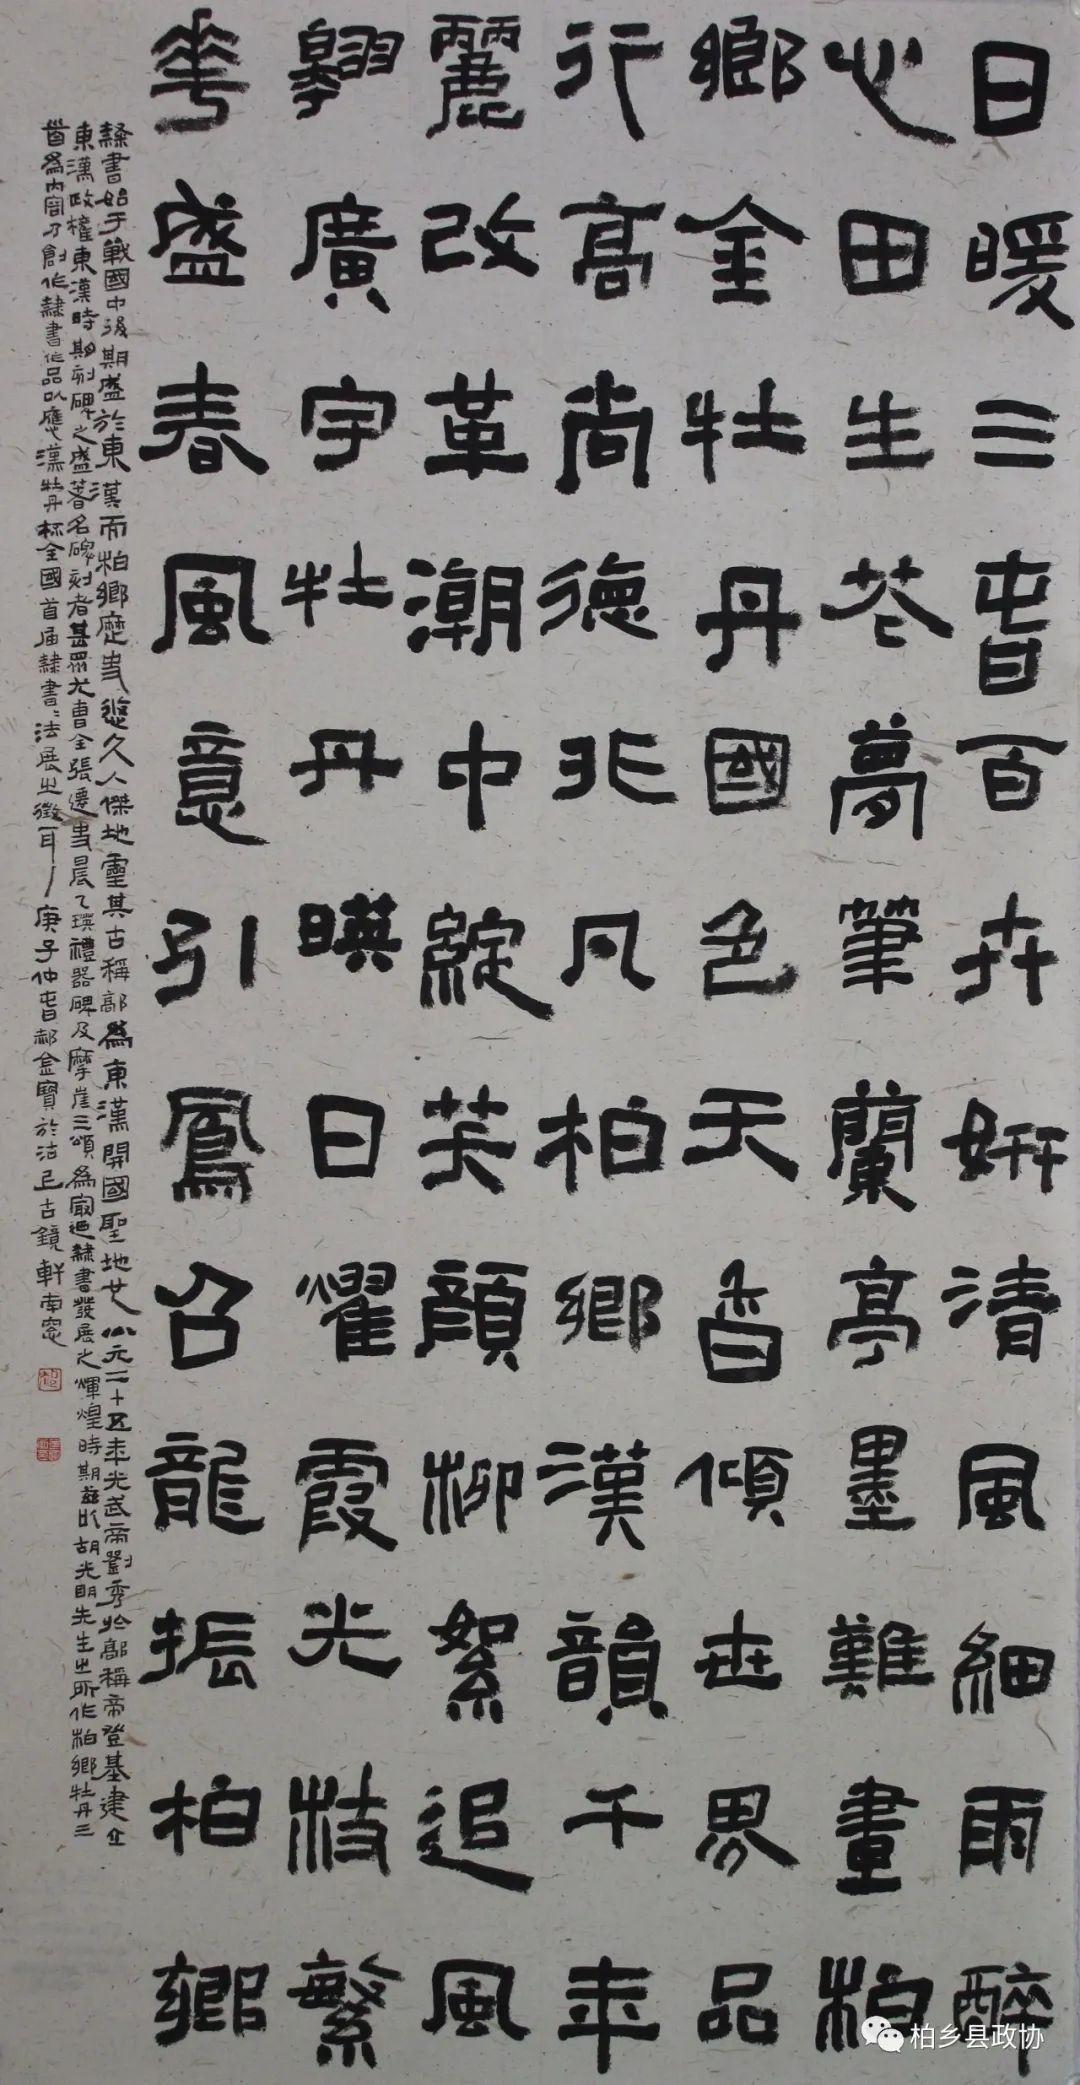 日暖三旾百卉妍清風細雨醉
心田生芲夢筆蘭亭墨難畫柏
鄉金牡丹國色天香傾世界品
行高尚德非凡柏鄉漢韻千年
麗改革潮中綻芙顏柳絮追風
翱廣宇牡丹暎日耀霞光枝繁
華盛春風意引鳳召龍振柏鄉
隸書始于戰國中後期盛於東漢而柏鄉歷史悠久人傑地靈其古稱鄗為東漢開國聖地也公元二十五年光武帝劉秀於鄗稱帝登基建立
東漢政權東漢時期刻碑之盛著名碑刻者甚眾尤曹全張遷史晨乙瑛禮器碑及摩崖三頌為最迺隸書發展之輝煌時期茲以胡光明先生之所作柏鄉牡丹三
首為內容乃創作隸書作品以應漢牡丹杯全國首屆隸書書法展之徵耳庚子仲旾郝金寶於沽上古鏡軒南窓
柏乡县政协